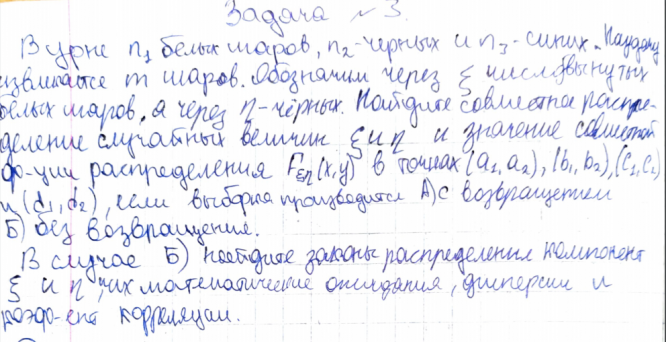 Задача №3.
В урне n₁ белых шаров, n₂-черных и n₃-синих. Наудачу
извлекаются m шаров. Обозначим через ξ число вынутых
белых шаров, а через η-чёрных. Найдите совместное распре-
деление случайных величин ξ и η и значение совместной
ф-ции распределения Fξη(x,y) в точках (a₁,a₂), (b₁,b₂), (c₁,c₂)
и (d₁,d₂), если выборка производится А) с возвращением
Б) без возвращение.
В случае Б) найдите законы распределения компонент
ξ и η, их математические ожидания, дисперсии и
коэф-ент корреляции.